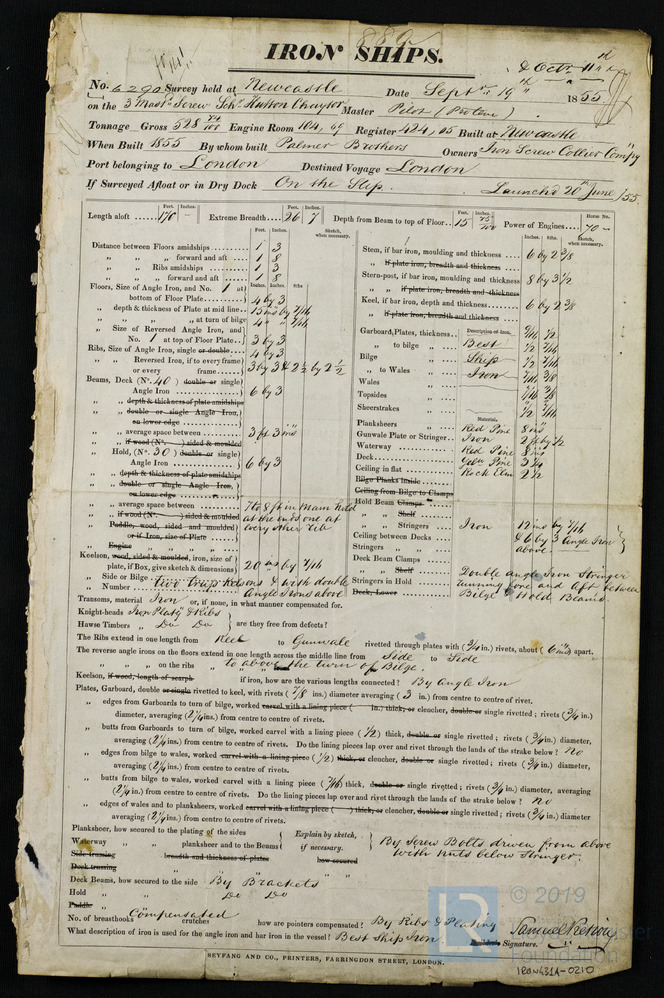 889
IRON SHIPS.
& Octr. 11th
No. 6290 Survey held at Newcastle Date Septr. 19th 1855
on the 3 Mastd. Screw Schr. Hutton Chaytor Master Pilot (Protem)
Tonnage Gross 528 74/100 Engine Room 104, 69 Register 424, 05 Built at Newcastle
When Built 1855 By whom built Palmer Brothers Owners Iron Screw Collier Compy
Port belonging to London Destined Voyage London
If Surveyed Afloat or in Dry Dock On the Slip. Launchd 20th June /55
Length aloft 170 Extreme Breadth 26 7 Depth from Beam to top of Floor 15 75/100 Power of Engines 70
Distance between Floors amidships 1 3
" " " forward and aft 1 8
" " Ribs amidships 1 3
" " " forward and aft 1 8
Floors, Size of Angle Iron, and No. 1 at bottom of Floor Plate 4 by 3
" depth & thickness of Plate at mid line 15 ins by 7/16
" " " at turn of bilge 4 " " 7/16
" Size of Reversed Angle Iron, and No. 1 at top of Floor Plate 3 by 3
Ribs, Size of Angle Iron, single or double 4 by 3
" " Reversed Iron, if to every frame or every frame 3 by 3 & 2 1/2 by 2 1/2
Beams, Deck (No. 40) double or single Angle Iron 6 by 3
" " depth & thickness of plate amidships
" " double or single Angle Iron, on lower edge
" " average space between 3 ft 3 ins
" " if wood (No. ) sided & moulded
" Hold, (No. 30) double or single Angle Iron 6 by 3
" " depth & thickness of plate amidships
" " double or single Angle Iron, on lower edge
" " average space between 7 to 8 ft in Main Hold
" " if wood (No. ) sided & moulded at the ends one at
" Paddle, wood, sided and moulded or if Iron, size of Plate every other Rib
" Engine
Keelson, wood, sided & moulded, iron, size of plate, if Box, give sketch & dimensions 20 ins by 7/16
" Side or Bilge
" Number two Bilge Kelsons & with double Angle Irons above
Stem, if bar iron, moulding and thickness 6 by 2 3/8
" if plate iron, breadth and thickness
Stern-post, if bar iron, moulding and thickness 8 by 3 1/2
" " if plate iron, breadth and thickness
Keel, if bar iron, depth and thickness 6 by 2 3/8
" if plate iron, breadth and thickness
Garboard, Plates, thickness
" to bilge " Best
Bilge " Ship
" to Wales " Iron
Wales "
Topsides "
Sheerstrakes "
Planksheers " Red Pine 8 ins
Gunwale Plate or Stringer Iron 2 ft by 1/2
Waterway Red Pine 8 ins
Deck Yellw Pine 3 1/4
Ceiling in flat Rock Elm 2 1/2
Bilge Planks Inside
Ceiling from Bilge to Clamps
Hold Beam Clamps
" " Shelf
" " Stringers Iron 12 ins by 7/16
Ceiling between Decks & 6 by 3 Angle Iron
Stringers " " above
Deck Beam Clamps
" " Shelf Double angle Iron Stringer
Stringers in Hold running fore and aft between
Deck, Lower Bilge & Hold Beams
Transoms, material Iron or, if none, in what manner compensated for.
Knight-heads Iron Plates & Ribs
Hawse Timbers " Do Do are they free from defects?
The Ribs extend in one length from Keel to Gunwale rivetted through plates with (3/4 in.) rivets, about (6 ins) apart.
The reverse angle irons on the floors extend in one length across the middle line from Side to Side
" " " on the ribs " to above the turn of Bilge.
Keelson, if wood, length of scarph if iron, how are the various lengths connected? By Angle Iron
Plates, Garboard, double or single rivetted to keel, with rivets (7/8 ins.) diameter averaging (3 in.) from centre to centre of rivet.
" edges from Garboards to turn of bilge, worked carvel with a lining piece ( in.) thick, or clencher, double or single rivetted; rivets (3/4 in.)
diameter, averaging (2 1/4 ins.) from centre to centre of rivets.
" butts from Garboards to turn of bilge, worked carvel with a lining piece (1/2) thick, double, or single rivetted; rivets (3/4 in.) diameter,
averaging (2 1/4 ins.) from centre to centre of rivets. Do the lining pieces lap over and rivet through the lands of the strake below? No
" edges from bilge to wales, worked carvel with a lining piece (1/2) thick, or clencher, double or single rivetted; rivets (3/4 in.) diameter,
averaging (2 1/4 ins.) from centre to centre of rivets.
" butts from bilge to wales, worked carvel with a lining piece (7/16) thick, double, or single rivetted; rivets (3/4 in.) diameter, averaging
(2 1/4 in.) from centre to centre of rivets. Do the lining pieces lap over and rivet through the lands of the strake below? No
" edges of wales and to planksheers, worked carvel with a lining piece ( ) thick, or clencher, double or single rivetted; rivets (3/4 in.) diameter
averaging (2 1/4 ins.) from centre to centre of rivets.
Planksheer, how secured to the plating of the sides Explain by sketch,
Waterway " " planksheer and to the Beams if necessary. By Screw Bolts driven from above with nuts below Stringer.
Side trussing breadth and thickness of plates how secured
Deck trussing
Deck Beams, how secured to the side By Brackets
Hold " " Do Do
Paddle "
No. of breasthooks Compensated crutches how are pointers compensated? By Ribs & Plating
What description of iron is used for the angle iron and bar iron in the vessel? Best Ship Iron. Signature.
SEYFANG AND CO., PRINTERS, FARRINGDON STREET, LONDON.
© 2019
LR
Foundation
IRON631A-0210